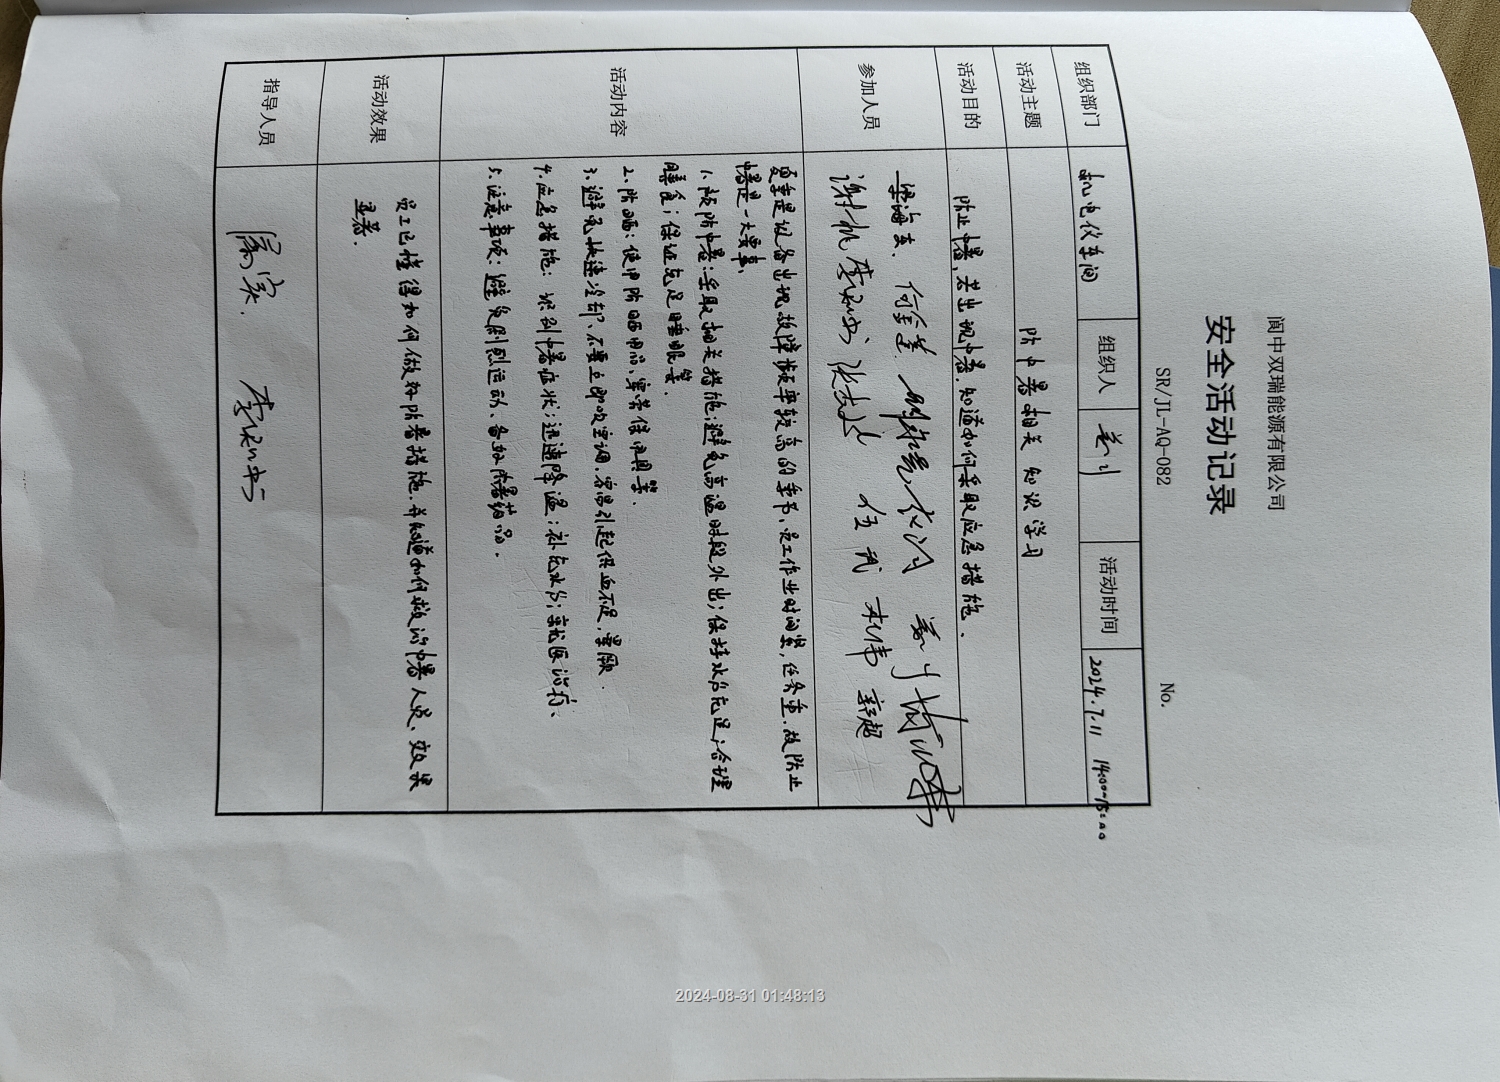 阆中双瑞能源有限公司
安全活动记录
SR/JL-AQ-082 No.
组织部门 机电仪车间 组织人 活动时间 2024.7.11 14:00-15:00
活动主题 防中暑相关知识学习
活动目的 防止中暑,若出现中暑,知道如何采取应急措施.
参加人员 梁海东、
伍武 杜伟
活动内容
夏季是设备出现故障频率较高的季节、员工作业时间紧,任务重.故防止
中暑是一大要事、
1、预防中暑:采取相关措施;避免高温时段外出;保持水分充足;合理
膳食;保证充足睡眠等.
2、防晒:使用防晒用品、穿劳保用具等.
3、避免快速冷却、不要立即吹空调.容易引起供血不足,晕厥.
4、应急措施:识别中暑症状;迅速降温;补充水分;就医治疗、
5、注意事项:避免剧烈运动、备好防暑药品.
活动效果 员工已懂得如何做好防暑措施.并知道如何救治中暑人员、效果
显著.
指导人员
2024-08-31 01:48:13